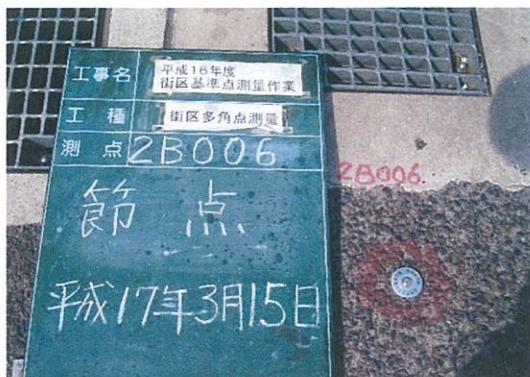 工事名
平成16年度
街区基準点測量作業
工種
街区多角点測量
測点
2B006
2B006
節点
平成17年3月15日